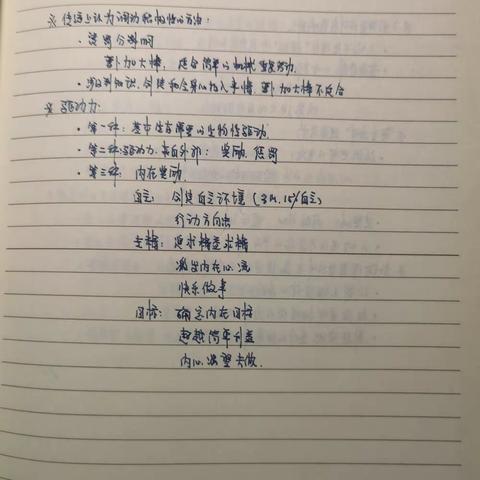 ※ 传统上认为调动积极性的方法:
· 奖罚分明
萝卜加大棒, 适合简单的机械重复劳动.
· 涉及到知识、创造和全身心投入事情, 萝卜加大棒不适合
※ 驱动力:
· 第一种: 基本生存需要的生物性驱动.
· 第二种驱动力: 来自外部: 奖励, 惩罚
· 第三种: 内在奖励.
自主: 创造自主环境 (3M, 15%自主)
行动方向感
专精: 追求精益求精
激发内在心流
快乐做事
目标: 确定内在目标
超越简单利益
内心渴望去做.